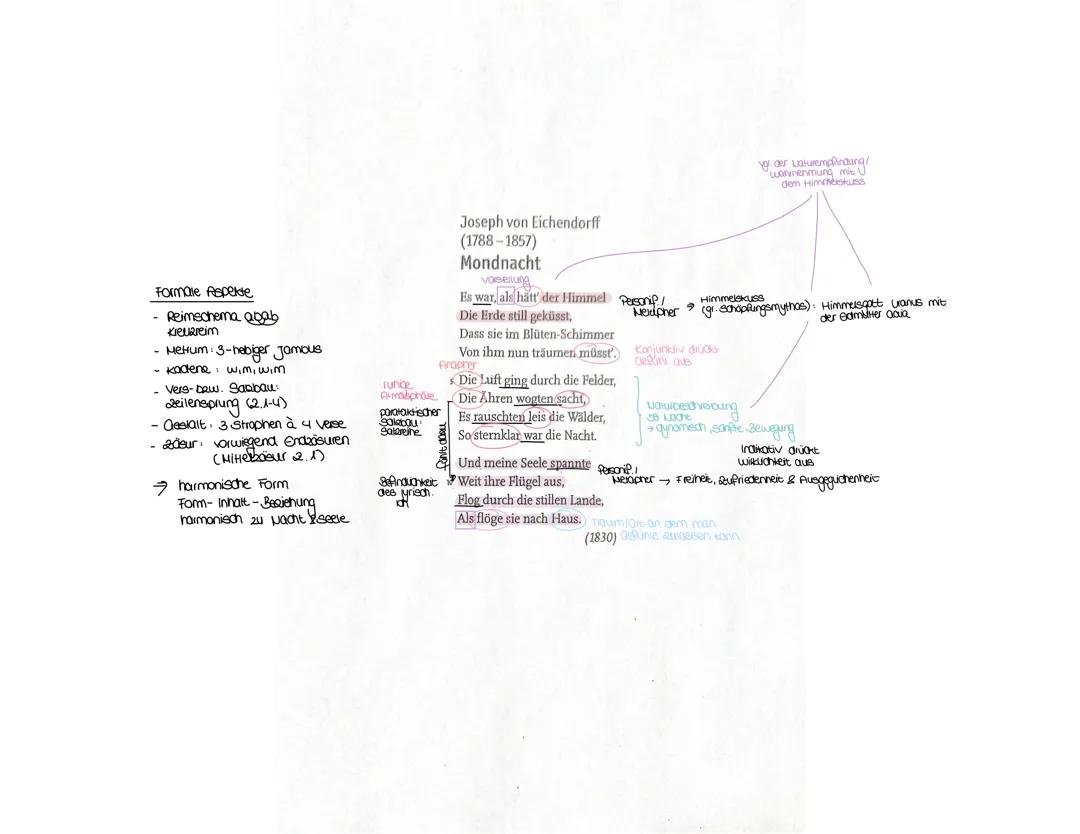 vgl. der Naturempfindung/
Wahrnehmung mit
dem Himmelskuss
Joseph von Eichendorff
(1788–1857)
Mondnacht
Vorstellung
Es war, als hätt' der Himmel
Die Erde still geküsst,
Dass sie im Blüten-Schimmer
Von ihm nun träumen müsst'.
Personif./
Metapher → Himmelskuss
(gr. Schöpfungsmythos): Himmelsgott Uranus mit
der Erdmutter Gaia
Konjunktiv drückt
Gefühl aus
Anapher
Die Luft ging durch die Felder,
Die Ähren wogten sacht,
Es rauschten leis die Wälder,
So sternklar war die Nacht.
ruhige
Atmosphäre
parataktischer
Satzbau:
Satzreihe
führt dazu
Naturbeschreibung
der Nacht
→ dynamisch, sanfte Bewegung
Indikativ drückt
Wirklichkeit aus
Und meine Seele spannte
Weit ihre Flügel aus,
Flog durch die stillen Lande,
Als flöge sie nach Haus.
(1830)
Befindlichkeit
des lyrisch.
Ich
Personif./
Metapher → Freiheit, Zufriedenheit & Ausgeglichenheit
Traum/Ort an dem man
Gefühle zulassen kann
Formale Aspekte
- Reimschema abab
Kreuzreim
- Metrum: 3-hebiger Jambus
- Kadenz: w,m,w,m
- Vers- bzw. Satzbau:
Zeilensprung (2.1-4)
- Gestalt: 3 Strophen à 4 Verse
- Zäsur: vorwiegend Endzäsuren
(Mittelzäsur 2.1)
→ harmonische Form
Form-Inhalt-Beziehung
harmonisch zu Nacht & Seele